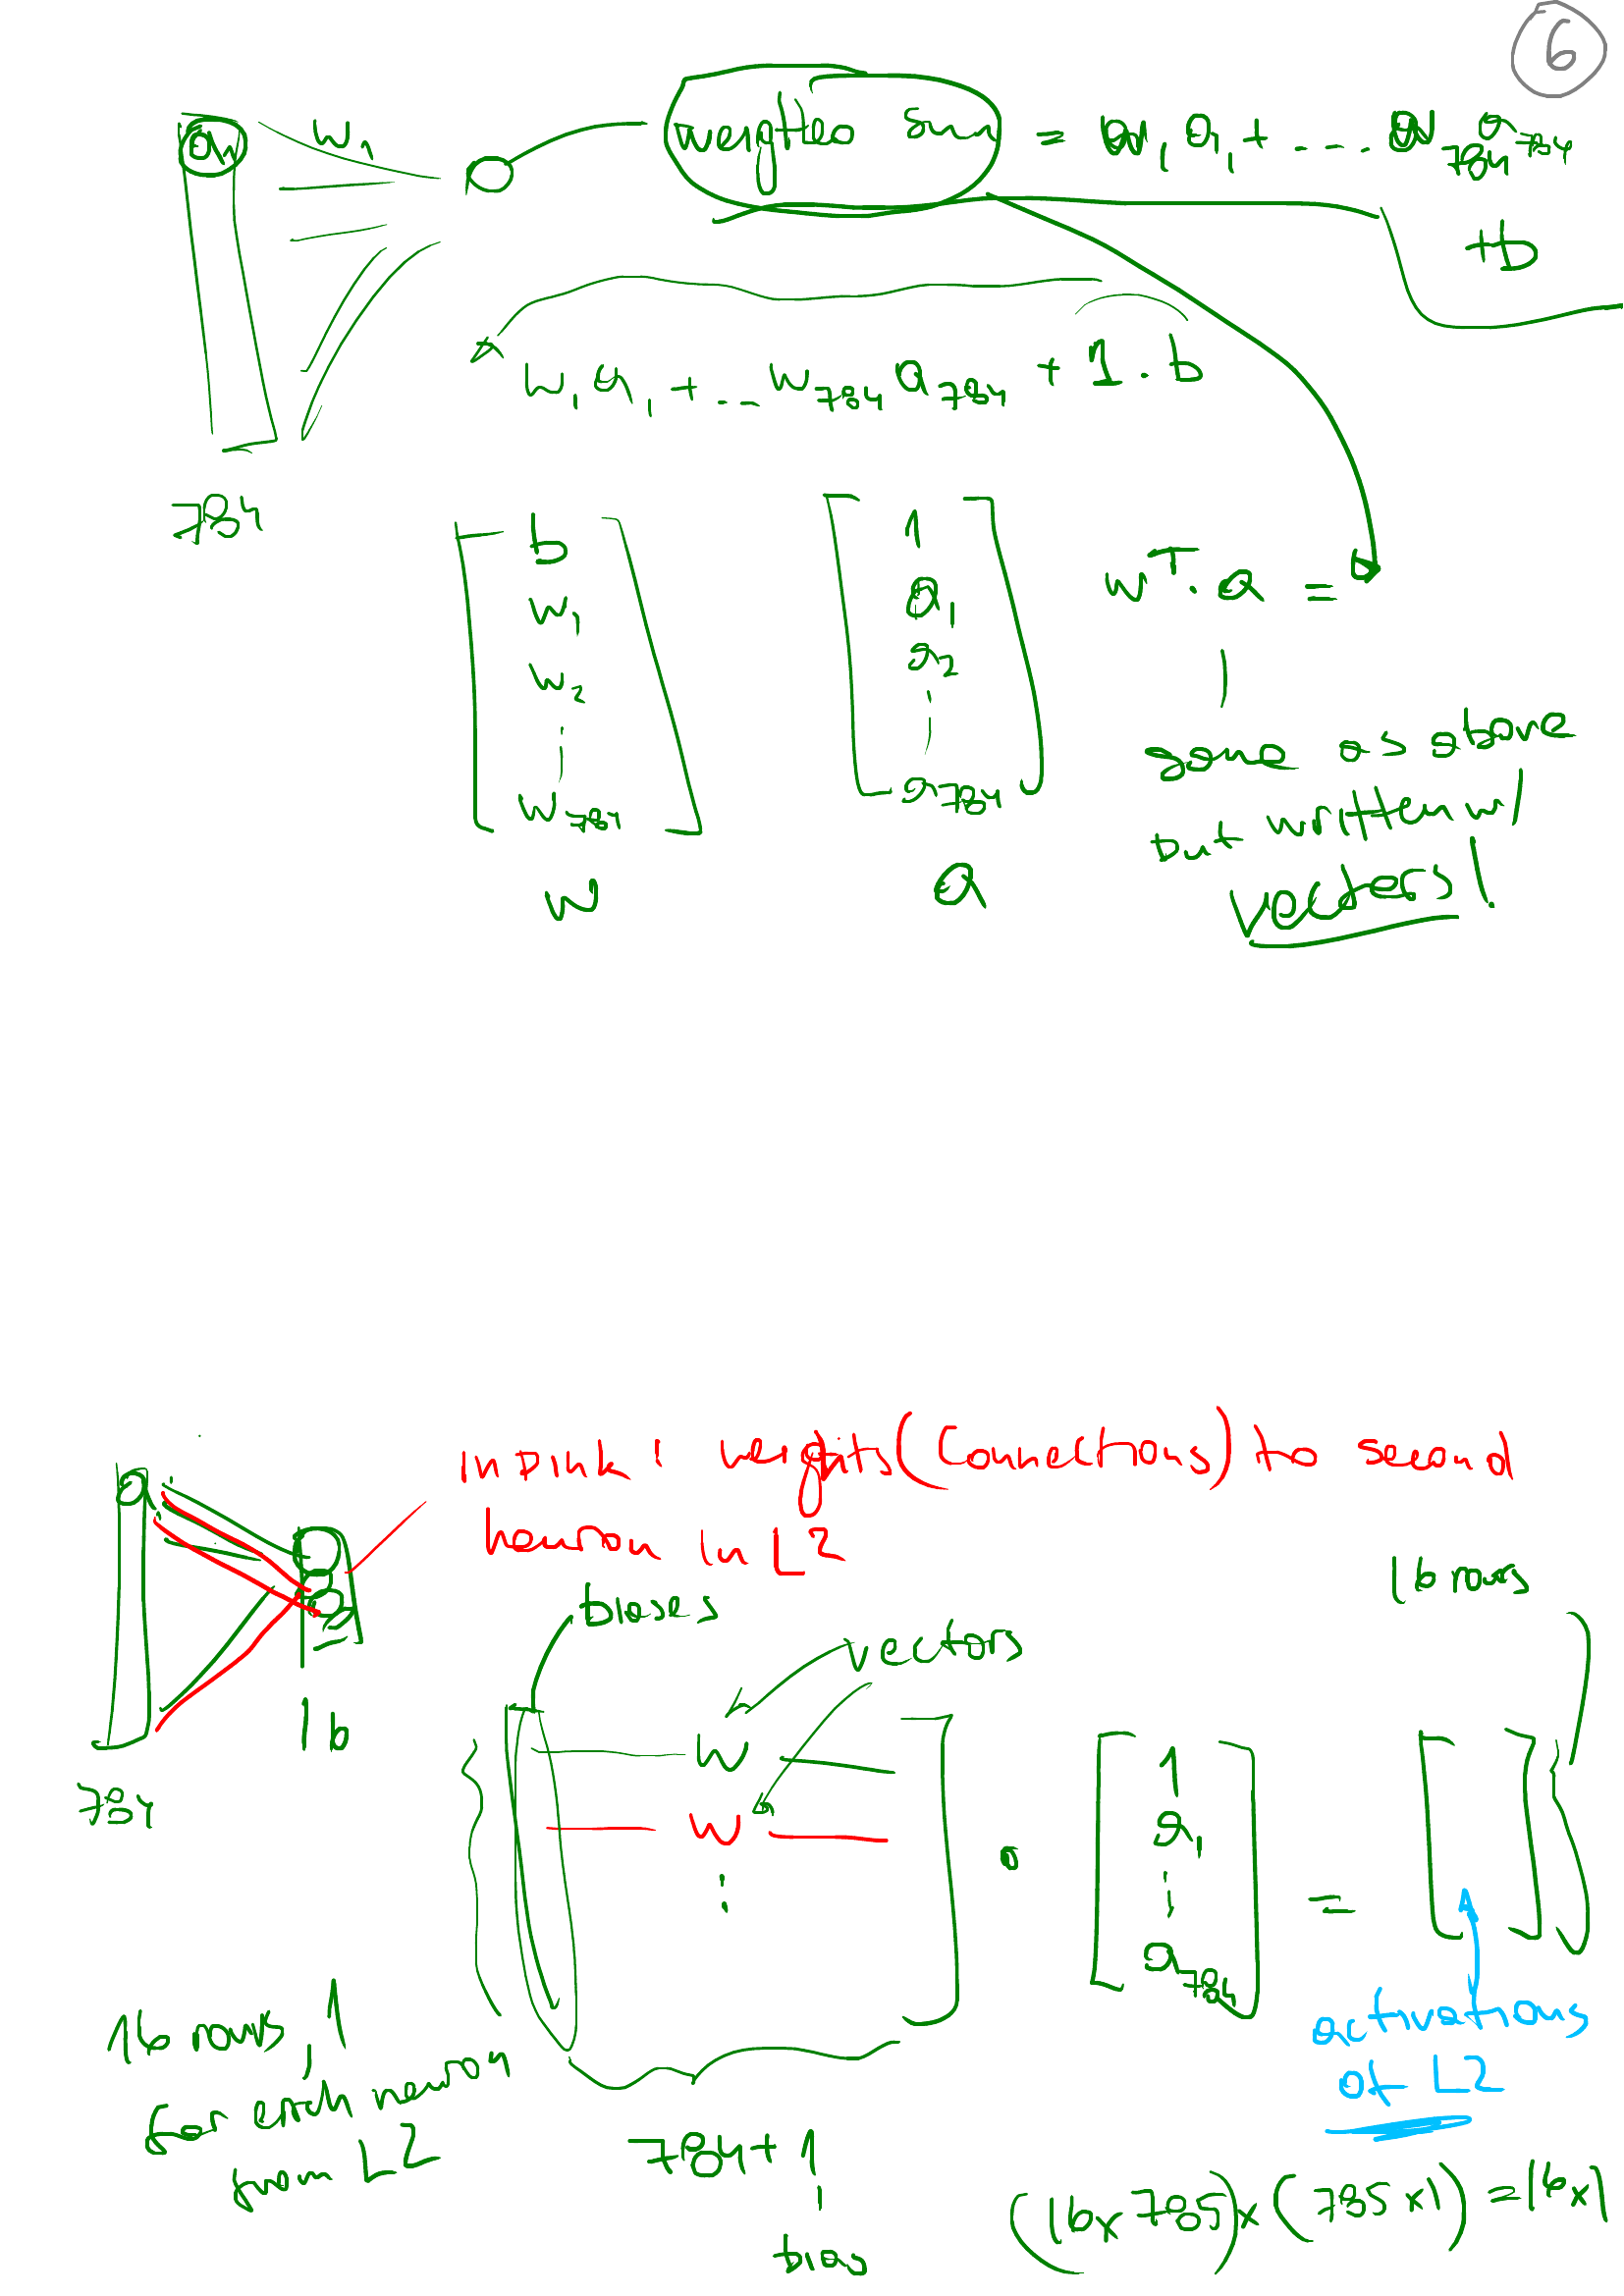 6
a₁ w₁ weighted sum = w₁ a₁ + .... w₇₈₄ a₇₈₄
+b
w₁ a₁ + ... w₇₈₄ a₇₈₄ + 1 . b
784
b
w₁
w₂
⋮
w₇₈₄
w
1
a₁
a₂
⋮
a₇₈₄
a
wᵀ . a =
same as above
but written w/
vectors!
in pink : weights (connections) to second
neuron in L2
a₁
784
16
biases
vectors
16 rows
w
w
⋮
1
a₁
⋮
a₇₈₄
=
activations
of L2
16 rows, 1
for each neuron
from L2
784 + 1
bias
(16x 785) x (785 x 1) = 16 x 1